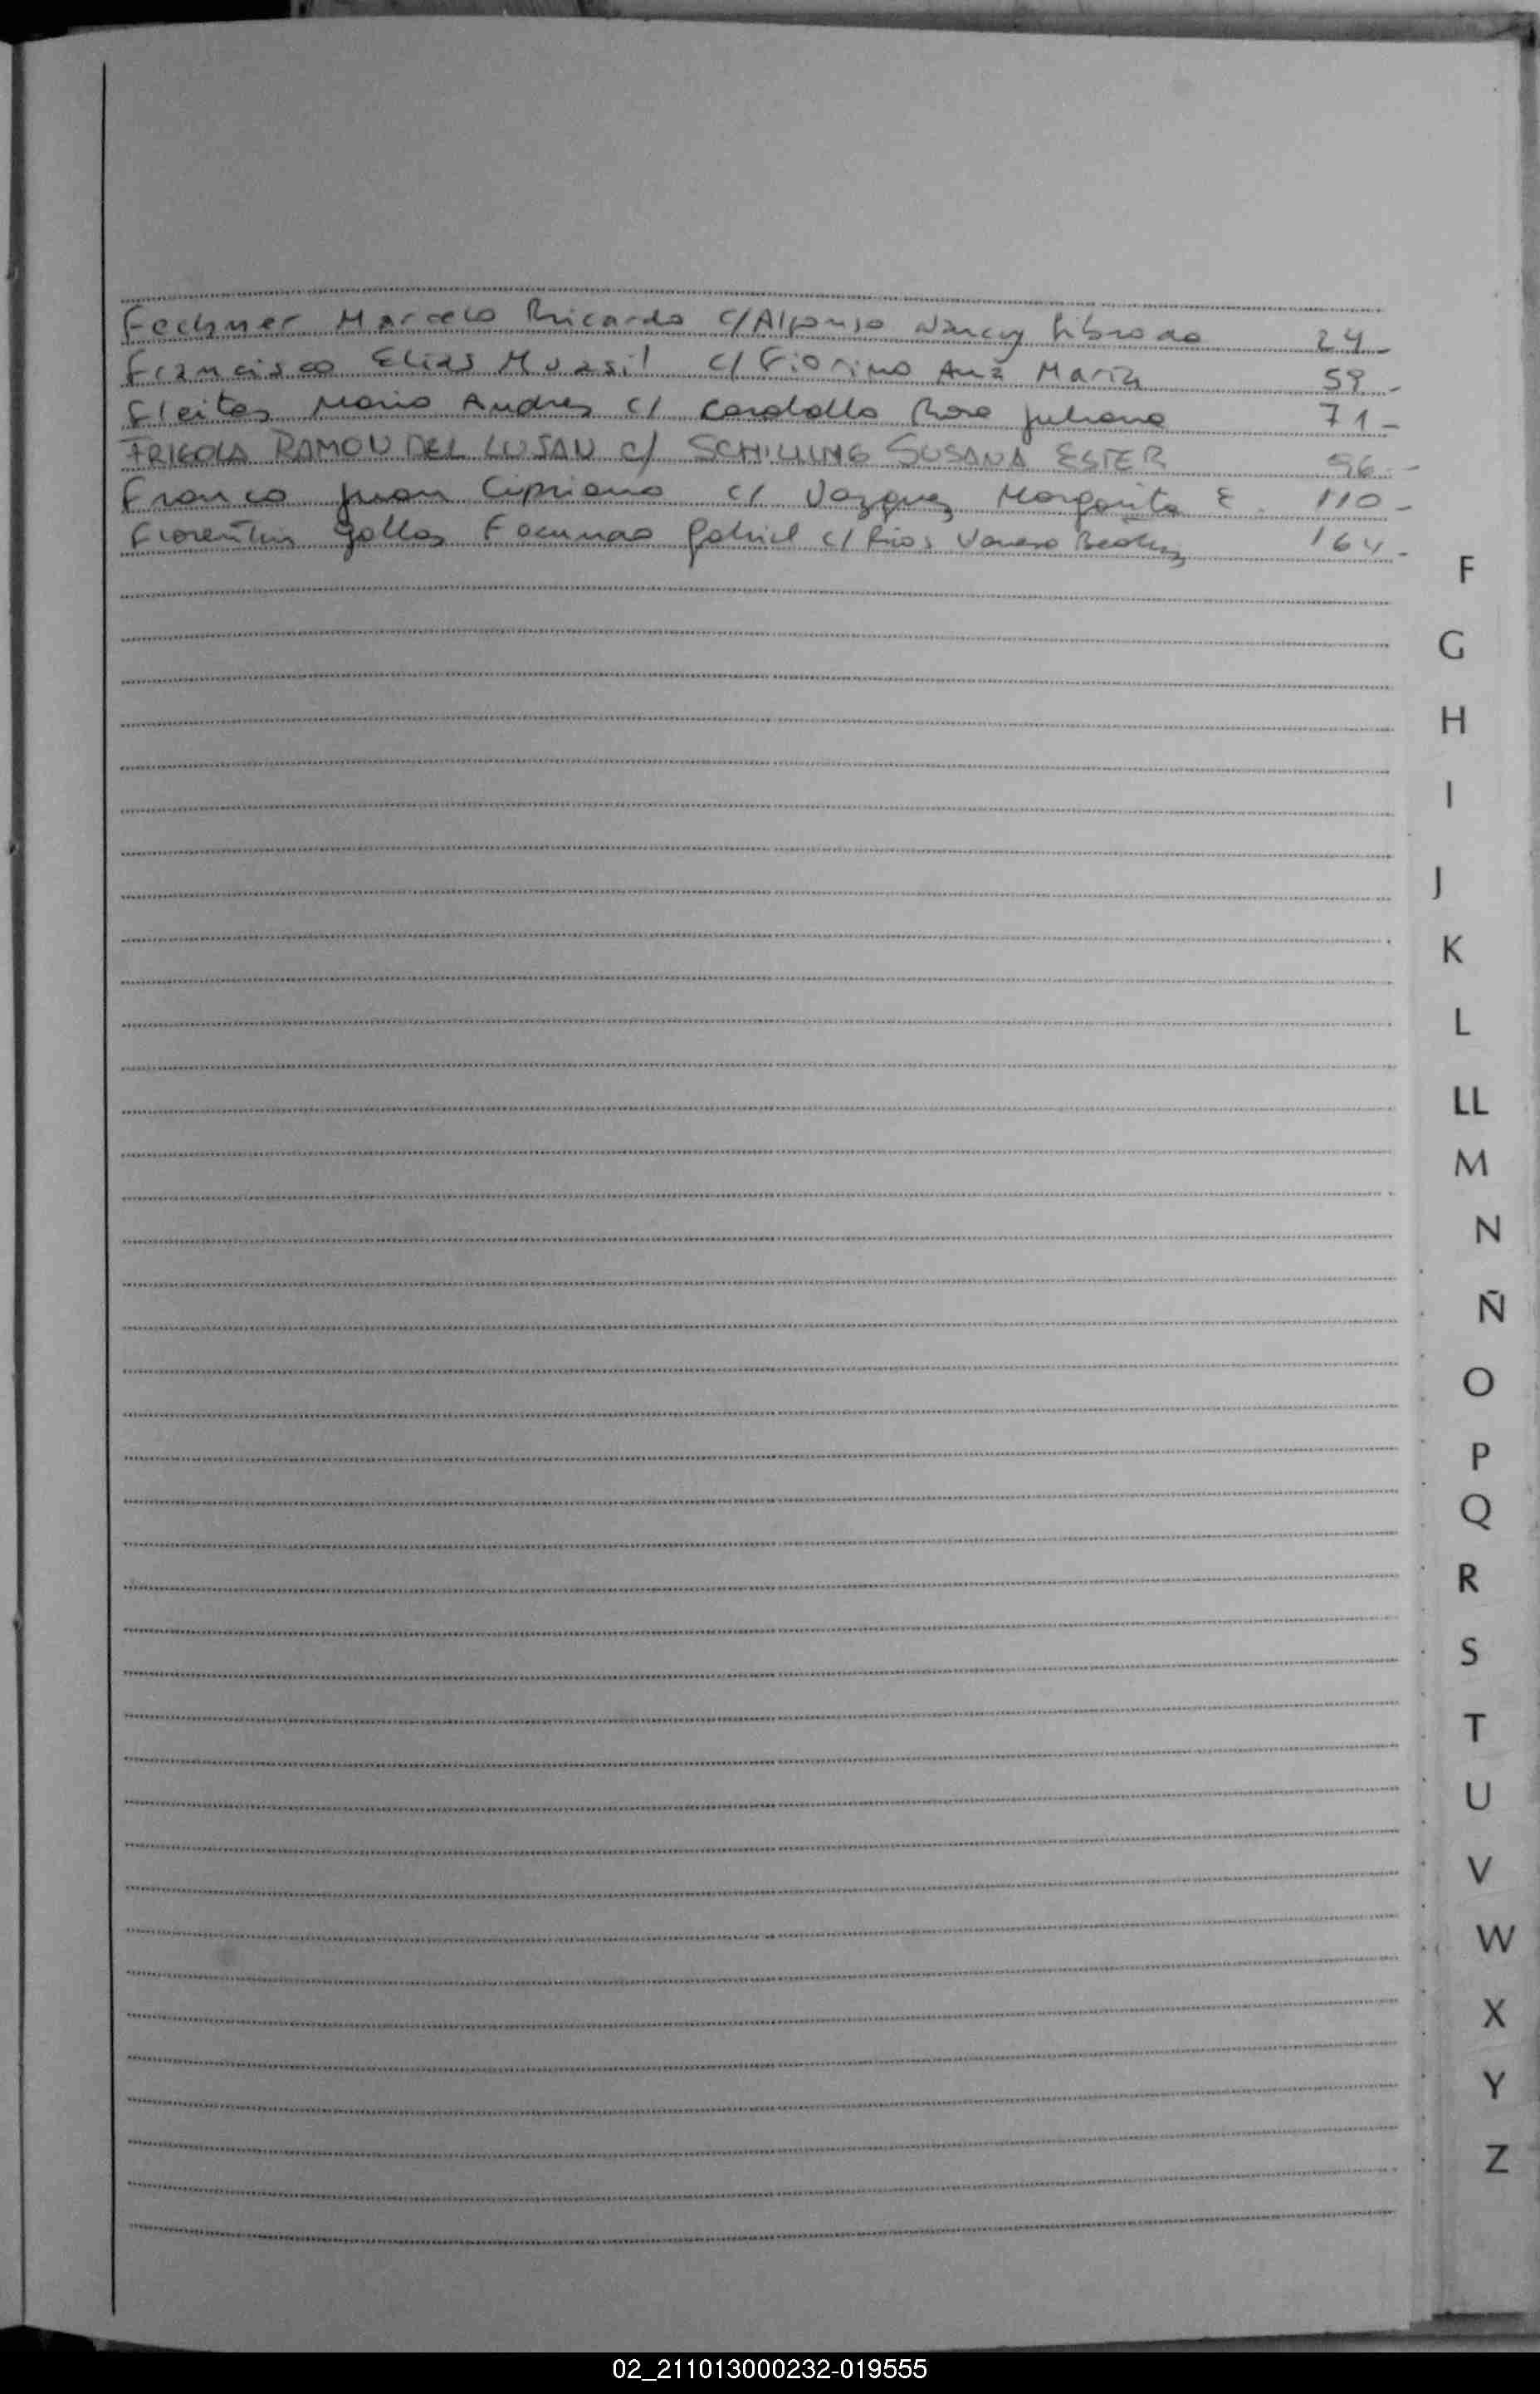 Fechner Marcelo Ricardo c/ Alfonso Nancy Librada 24-
Francisco Elias Muasil c/ Fiorino Ana María 59-
Fleitas Mario Andres c/ Cardallo Rosa Juliana 71-
FRIGOLA RAMON DEL LUJAN c/ SCHILLING SUSANA ESTER 96-
Franco Juan Cipriano c/ Vazquez Margarita E. 110-
Fiorentin Gallas Facundo Gabriel c/ Rios Beatriz 164-
F
G
H
I
J
K
L
LL
M
N
Ñ
O
P
Q
R
S
T
U
V
W
X
Y
Z
02_211013000232-019555